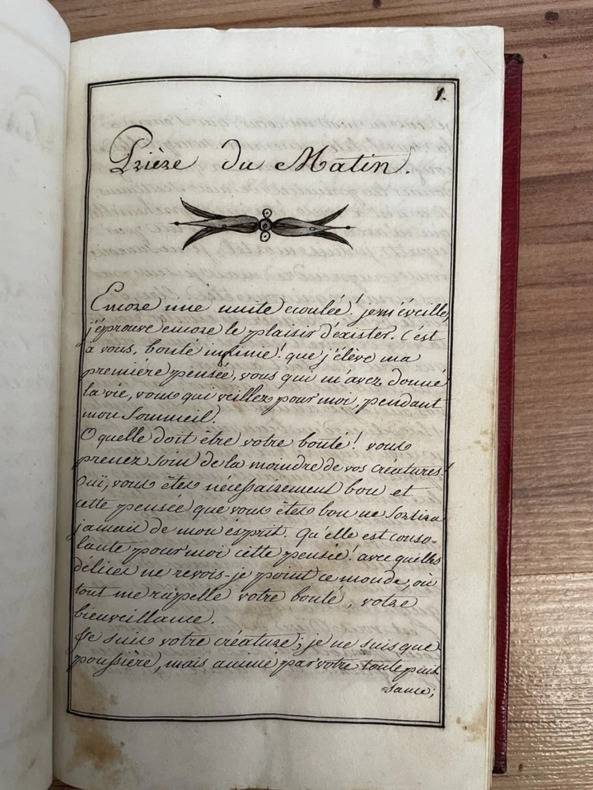 1.
Prière du Matin.
Encore une nuite ecoulée! je m'éveille,
j'éprouve encore le plaisir d'éxister. C'est
à vous, bonté infinie! que j'élève ma
première pensée, vous qui m'avez donné
la vie, vous qui veillez pour moi, pendant
mon Sommeil,
O quelle doit être votre bonté! vous
prenez soin de la moindre de vos créatures!
Oui, vous êtes nécessairement bon et
cette pensée que vous êtes bon ne Sortira
jamais de mon ésprit. Qu'elle est conso-
lante pour moi cette pensée! avec quelles
délices ne revois-je point ce monde, où
tout me rappelle votre bonté, votre
bienveillance.
Je suis votre créature; je ne suis que
poussière, mais animé par votre toute puis
sance;